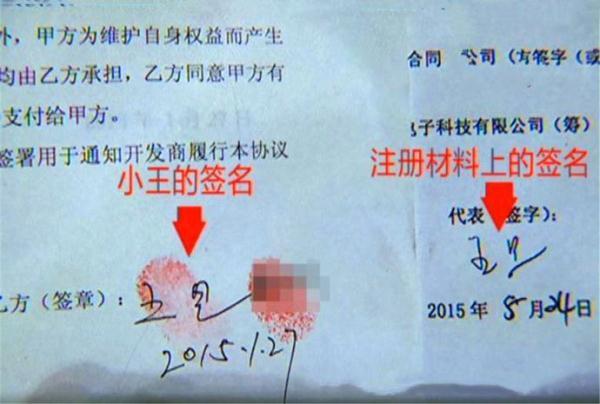 外，甲方为维护自身权益而产生
均由乙方承担，乙方同意甲方有
支付给甲方。
签署用于通知开发商履行本协议
小王的签名
乙方（签章）：
2015.1.27
合同 公司（方签字（或
电子科技有限公司（筹）
注册材料上的签名
代表（签字）：
2015年5月24日